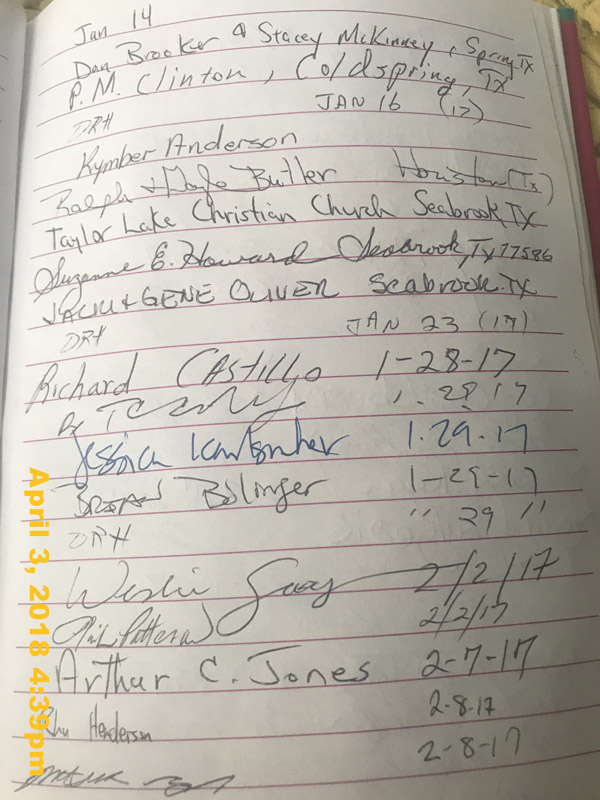 Jan 14
Dan Brooker & Stacey McKinney, Spring TX
P.M. Clinton, Coldspring, TX
DRH JAN 16 (17)
Kymber Anderson
Ralph & Butler Houston (Tx)
Taylor Lake Christian Church Seabrook TX
Suzanne E. Howard Seabrook, TX 77586
JACKI & GENE OLIVER Seabrook. TX
DRH JAN 23 (17)
Richard CASTILLO 1-28-17
1. 28 17
Jessica 1.29.17
BRIAN Bolinger 1-29-17
DRH " 29 "
Weslie 2/2/17
Phil Patterson 2/2/17
Arthur C. Jones 2-7-17
Henderson 2-8-17
2-8-17
April 3, 2018 4:39pm